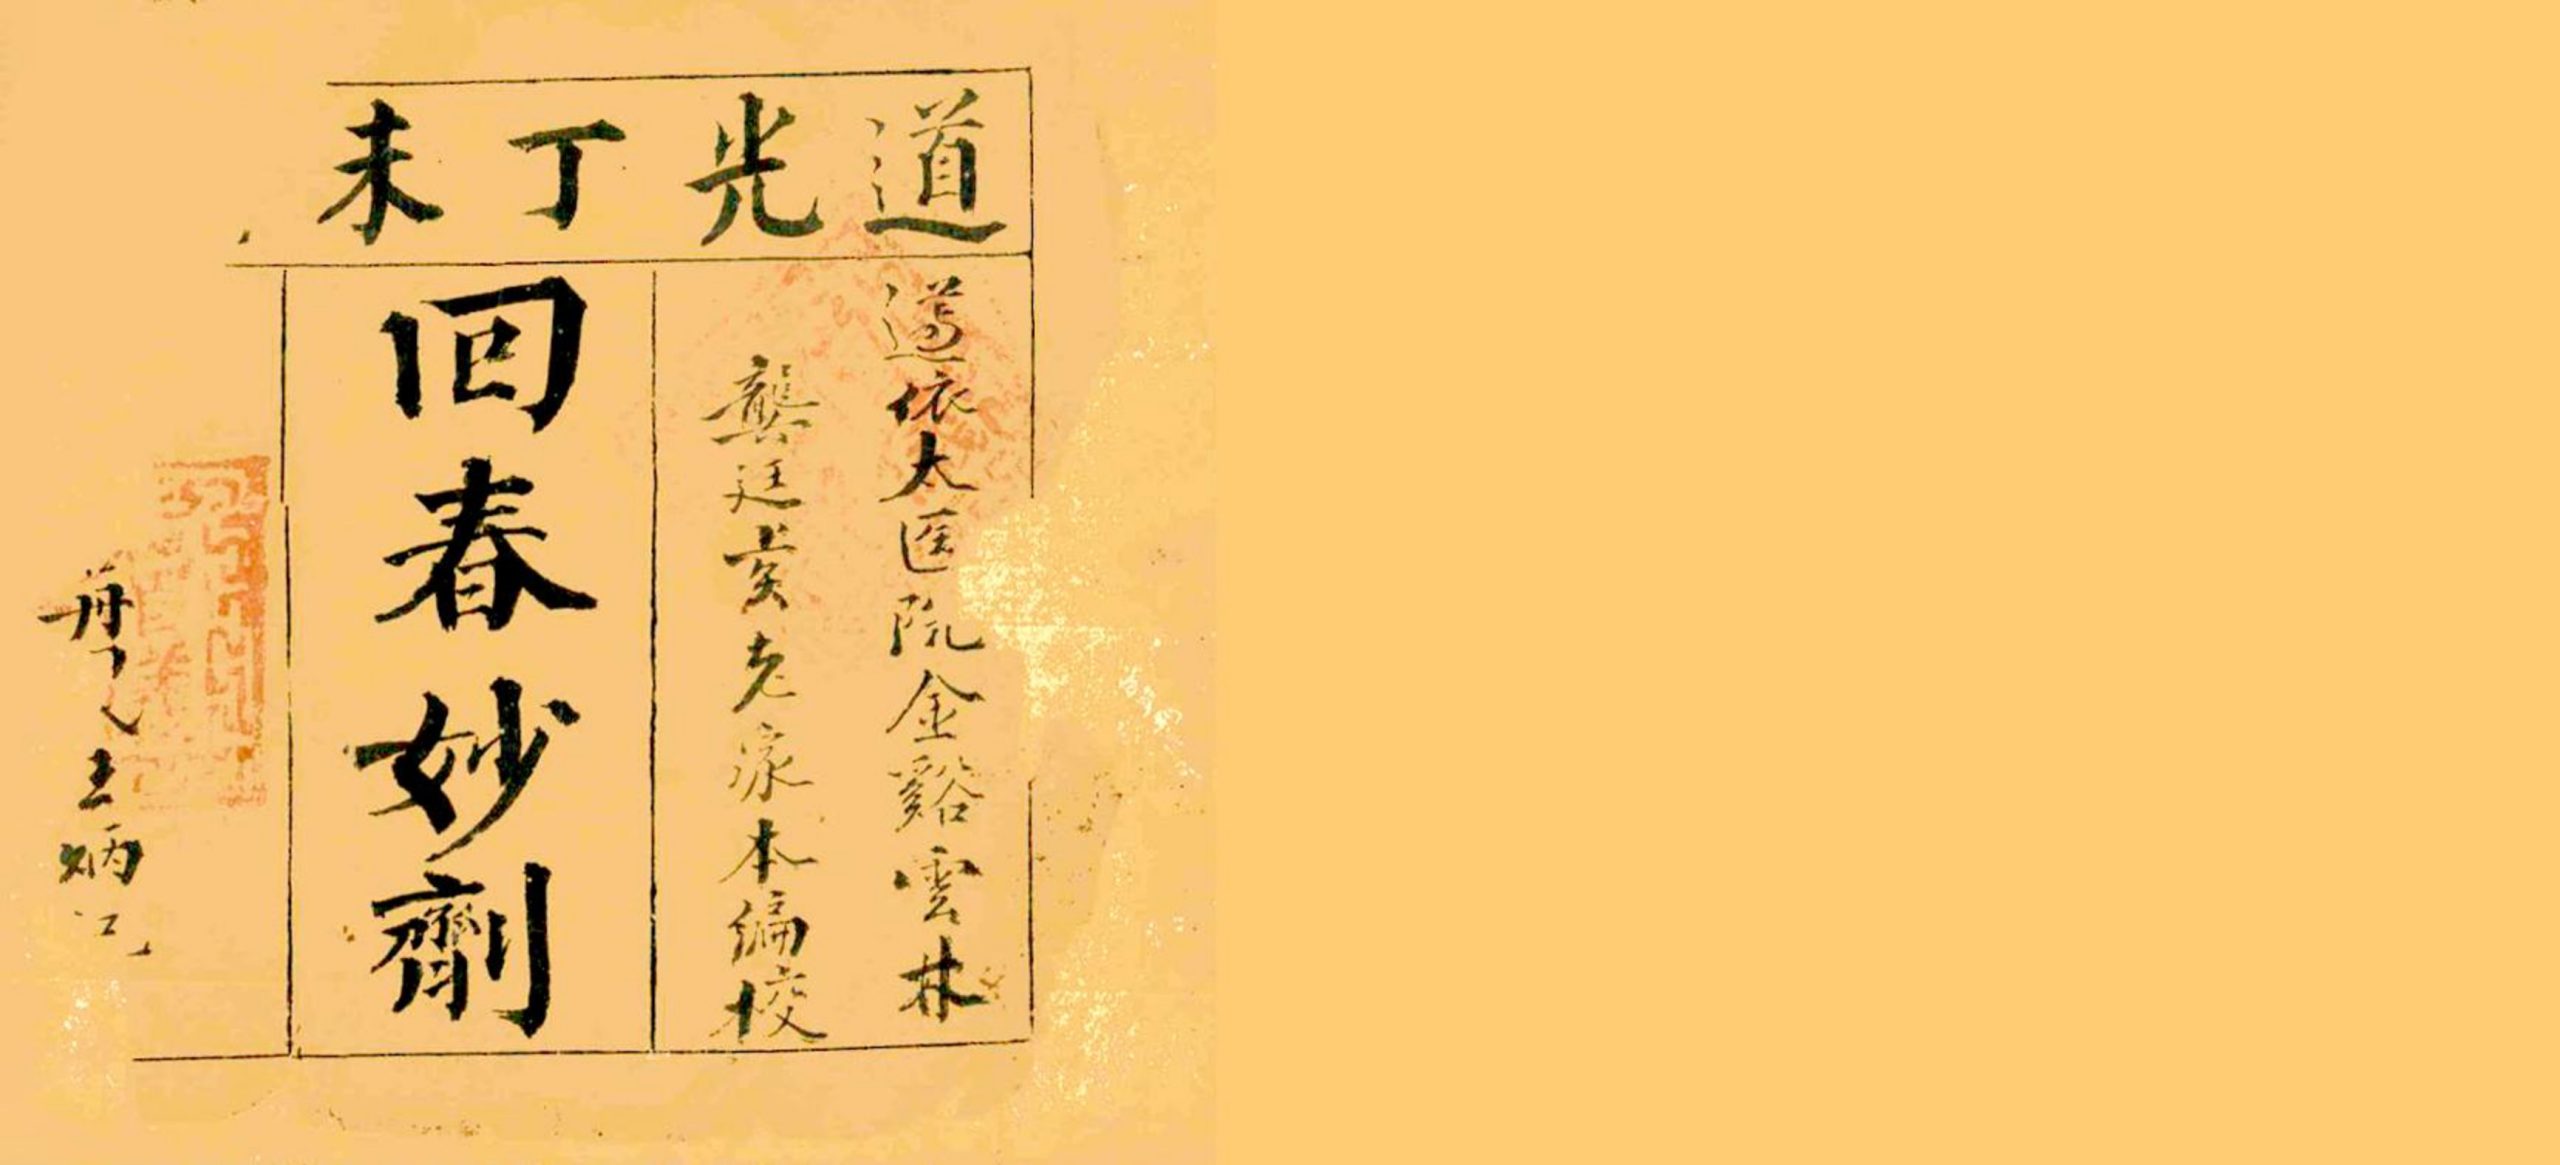 道光丁未
遵依太医院金谿雲林
龔廷賢老家本編校
回春妙劑
王炳江